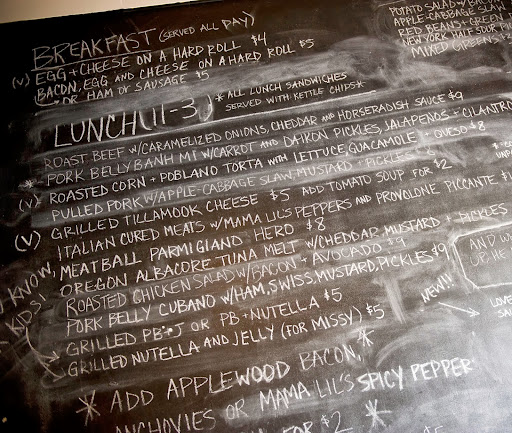 BREAKFAST (SERVED ALL DAY)
(V) EGG + CHEESE ON A HARD ROLL $4
BACON, EGG AND CHEESE ON A HARD ROLL $5
* OR HAM OR SAUSAGE $5
LUNCH (11-3) * ALL LUNCH SANDWICHES
SERVED WITH KETTLE CHIPS *
ROAST BEEF W/CARAMELIZED ONIONS, CHEDDAR AND HORSERADISH SAUCE $9
* PORK BELLY BANH MI W/CARROT AND DAIKON PICKLES, JALAPEÑOS + CILANTRO
(V) ROASTED CORN + POBLANO TORTA WITH LETTUCE, GUACAMOLE + QUESO $8
PULLED PORK W/APPLE-CABBAGE SLAW, MUSTARD + PICKLES
(V) GRILLED TILLAMOOK CHEESE $5 ADD TOMATO SOUP FOR $2
ITALIAN CURED MEATS W/MAMA LIL'S PEPPERS AND PROVOLONE PICCANTE
MEATBALL PARMIGIANO HERO $8
OREGON ALBACORE TUNA MELT W/CHEDDAR, MUSTARD + PICKLES
ROASTED CHICKEN SALAD W/BACON + AVOCADO $9
PORK BELLY CUBANO W/HAM, SWISS, MUSTARD, PICKLES $9
GRILLED PB+J OR PB+NUTELLA $5
GRILLED NUTELLA AND JELLY (FOR MISSY) $5
KNOW,
KIDS!
NEW!!
* ADD APPLEWOOD BACON, *
ANCHOVIES OR MAMA LIL'S SPICY PEPPER
FOR $2 *
POTATO SALAD W/
APPLE-CABBAGE SLAW
RED BEANS + GREEN
NEW YORK HALF SOUR
MIXED GREENS
AND
UP, HE
LOVE